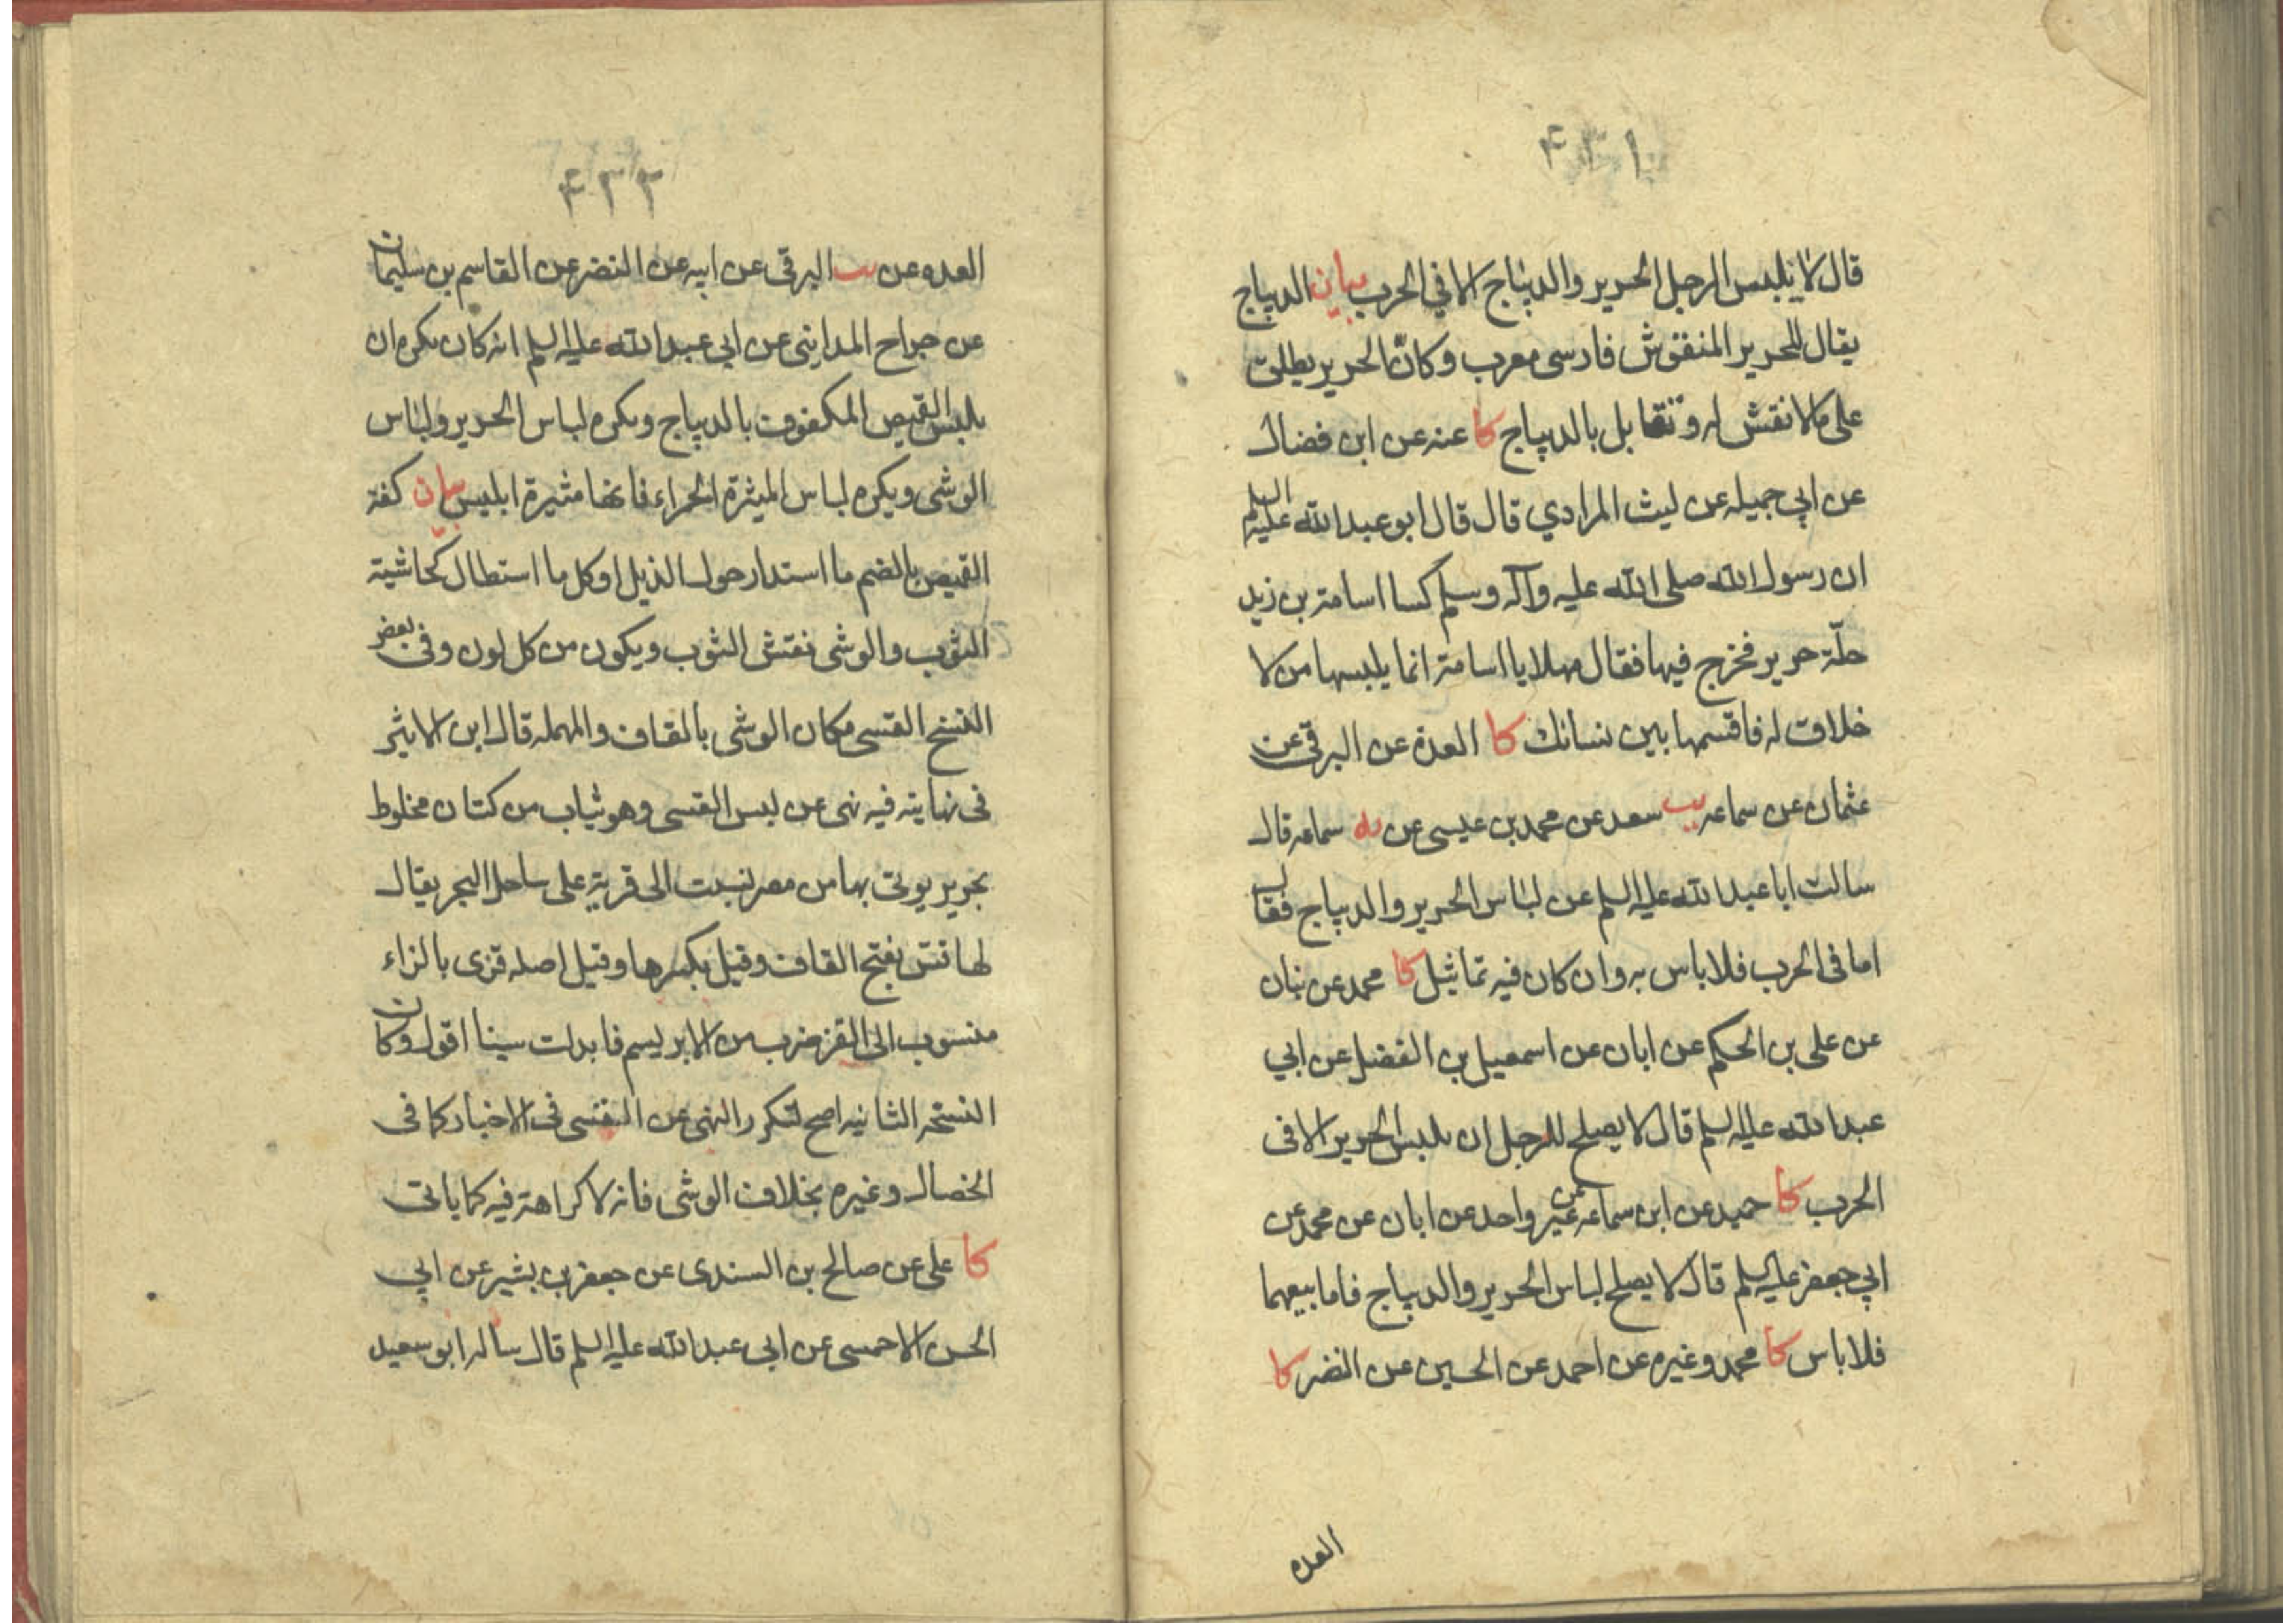 ۴۳۱
قال لا يلبس الرجل الحرير والديباج الا في الحرب بيان الديباج
يقال للحرير المنقوش فارسى معرب وكانّ الحرير يطلق
على مالا نقش له وتقابل بالديباج كا عنه عن ابن فضال
عن ابي جميله عن ليث المرادي قال قال ابو عبدالله عليه السلم
ان رسول الله صلى الله عليه وآله وسلم كسا اسامة بن زيد
حلّة حرير فخرج فيها فقال مهلا يا اسامة انما يلبسها من لا
خلاق له فاقسمها بين نسائك كا العدة عن البرقى عن
عثمان عن سماعه يب سعد عن محمد بن عيسى عن سماعه قال
سالت ابا عبدالله عليه السلم عن لباس الحرير والديباج فقال
اما فى الحرب فلا باس به وان كان فيه تماثيل كا محمد عن بنان
عن على بن الحكم عن ابان عن اسمعيل بن الفضل عن ابي
عبدالله عليه السلم قال لا يصلح للرجل ان يلبس الحرير الا فى
الحرب كا حميد عن ابن سماعه عن غير واحد عن ابان عن محمد عن
ابي جعفر عليه السلم قال لا يصلح لباس الحرير والديباج فاما بيعهما
فلا باس كا محمد وغيره عن احمد عن الحسين عن النضر كا
العده
۴۳۲
العده عن البرقى عن ابيه عن النضر عن القاسم بن سليمان
عن جراح المداينى عن ابي عبدالله عليه السلم انه كان يكره ان
يلبس القميص المكفوف بالديباج ويكره لباس الحرير ولباس
الوشى ويكره لباس الميثرة الحمراء فانها مثيرة ابليس بيان كفة
القميص بالضم ما استدار حول الذيل او كل ما استطال كحاشية
الثوب والوشى نقش الثوب ويكون من كل لون وفى بعض
النسخ القسى مكان الوشى بالقاف والمهمله قال ابن الاثير
فى نهايته فيه نهى عن لبس القسى وهو ثياب من كتان مخلوط
بحرير يوتى بها من مصر نسبت الى قرية على ساحل البحر يقال
لها قس بفتح القاف وقيل بكسرها وقيل اصله قزى بالزاء
منسوب الى القز ضرب من الابريسم فابدلت سينا اقول وكان
النسخه الثانيه اصح لتكرر النهى عن القسى فى الاخبار كما فى
الخصال وغيره بخلاف الوشى فانه لا كراهة فيه كما ياتى
كا على عن صالح بن السندى عن جعفر بن بشير عن ابي
الحسن الاحمسى عن ابى عبدالله عليه السلم قال ساله ابو سعيد